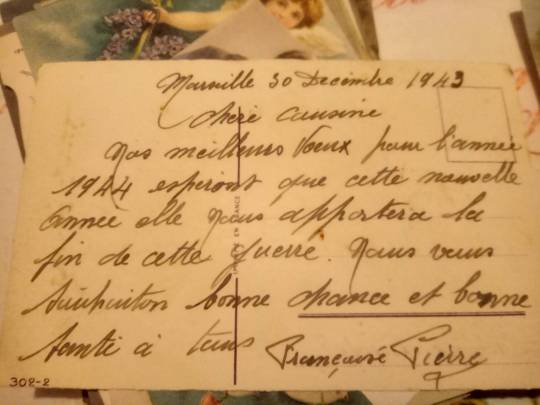 Marseille 30 Decembre 1943
chère cousine
Nos meilleurs Voeux pour l'année
1944 esperont que cette nouvelle
année elle nous apportera la
fin de cette guerre. Nous vous
souhaitons bonne chance et bonne
santé à tous
Françoise Pierre
302-2
EN FRANCE